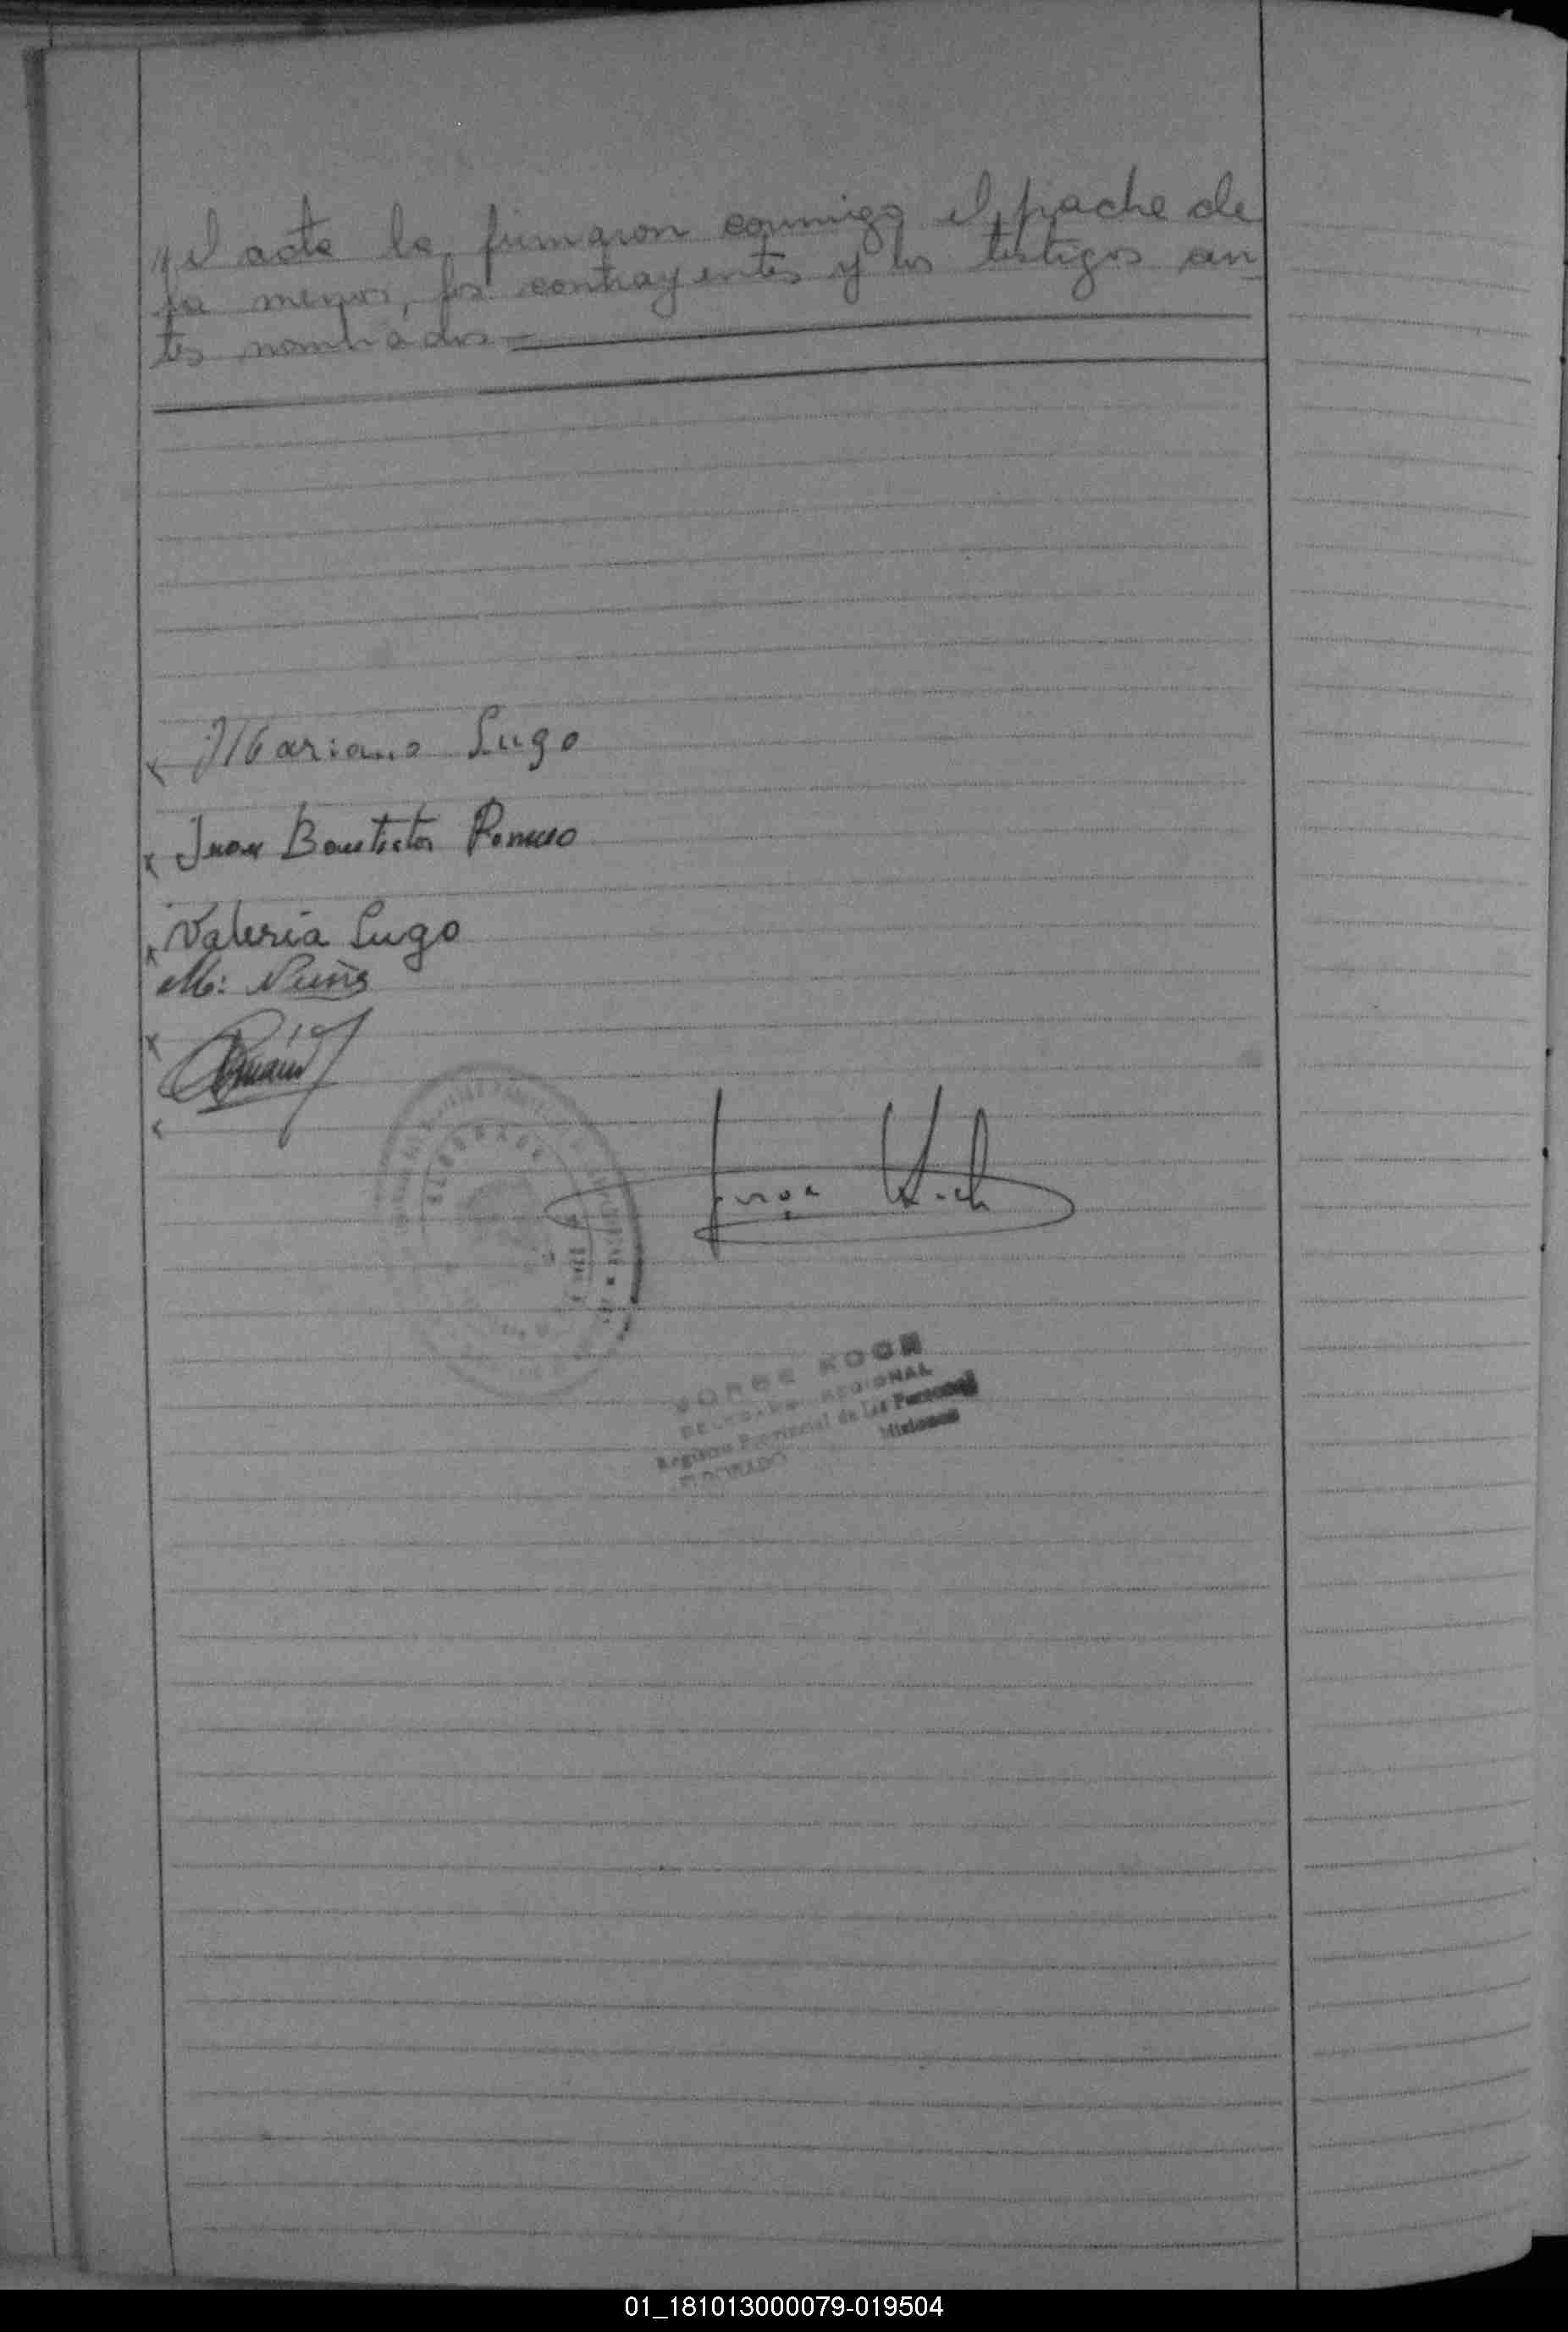 el acta la firmaron conmigo, el padre de
la menor, los contrayentes y los testigos an-
tes nombrados
x Mariano Lugo
x Juan Bautista Romero
x Valeria Lugo
M:
x
x
Jorge Koch
ELDORADO
JORGE KOCH
DELEGADO REGIONAL
Registro Provincial de las Personas
ELDORADO Misiones
01_181013000079-019504